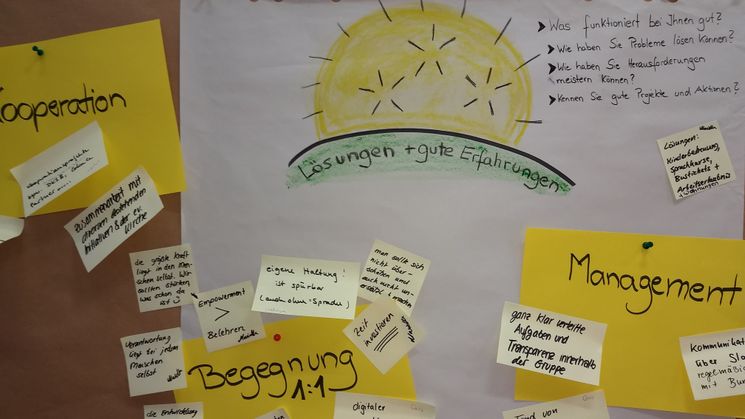 Kooperation
zusammenarbeit mit
diversen
Initiativen & der ev.
Kirche
Lösungen + gute Erfahrungen
Was funktioniert bei Ihnen gut?
Wie haben Sie Probleme lösen können?
Wie haben Sie Herausforderungen
meistern können?
Kennen Sie gute Projekte und Aktionen?
Lösungen:
Kinderbetreuung,
Sprachkurse,
Bustickets +
Arbeitserlaubnis
die größte Kraft
liegt in den Men-
schen selbst. Wir
sollten stärken,
was schon da
ist
Empowerment
>
Belehren
eigene Haltung!
ist spürbar
(auch ohne Sprache)
man sollte sich
nicht über-
schätzen und
auch nicht un-
ersetzl. machen
Zeit
investieren
Verantwortung
liegt bei jedem
Menschen
selbst
Begegnung
1:1
die Entwicklung
digitaler
Management
ganz klar verteilte
Aufgaben und
Transparenz innerhalb
der Gruppe
Kommunikat
über Sla
regelmäßig
mit Bu
Tand von